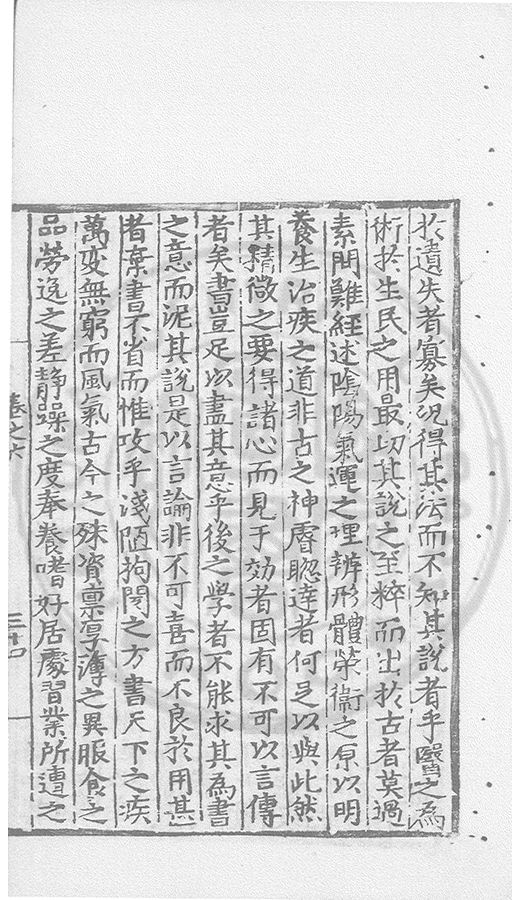 於遺失者寡矣况得其法而不知其說者乎醫之為
術於生民之用最切其說之至粹而出於古者莫過
素問難經述陰陽氣運之理辨形體榮衞之原以明
養生治疾之道非古之神睿聦達者何足以與此然
其精微之要得諸心而見于効者固有不可以言傳
者矣書豈足以盡其意乎後之學者不能求其為書
之意而泥其說是以言論非不可喜而不良於用甚
者棄書不省而惟攻乎淺陋拘閡之方書天下之疾
萬变無窮而風氣古今之殊資禀厚薄之異服食之
品勞逸之差靜躁之度奉養嗜好居處習業所遭之
卷之六
三十四